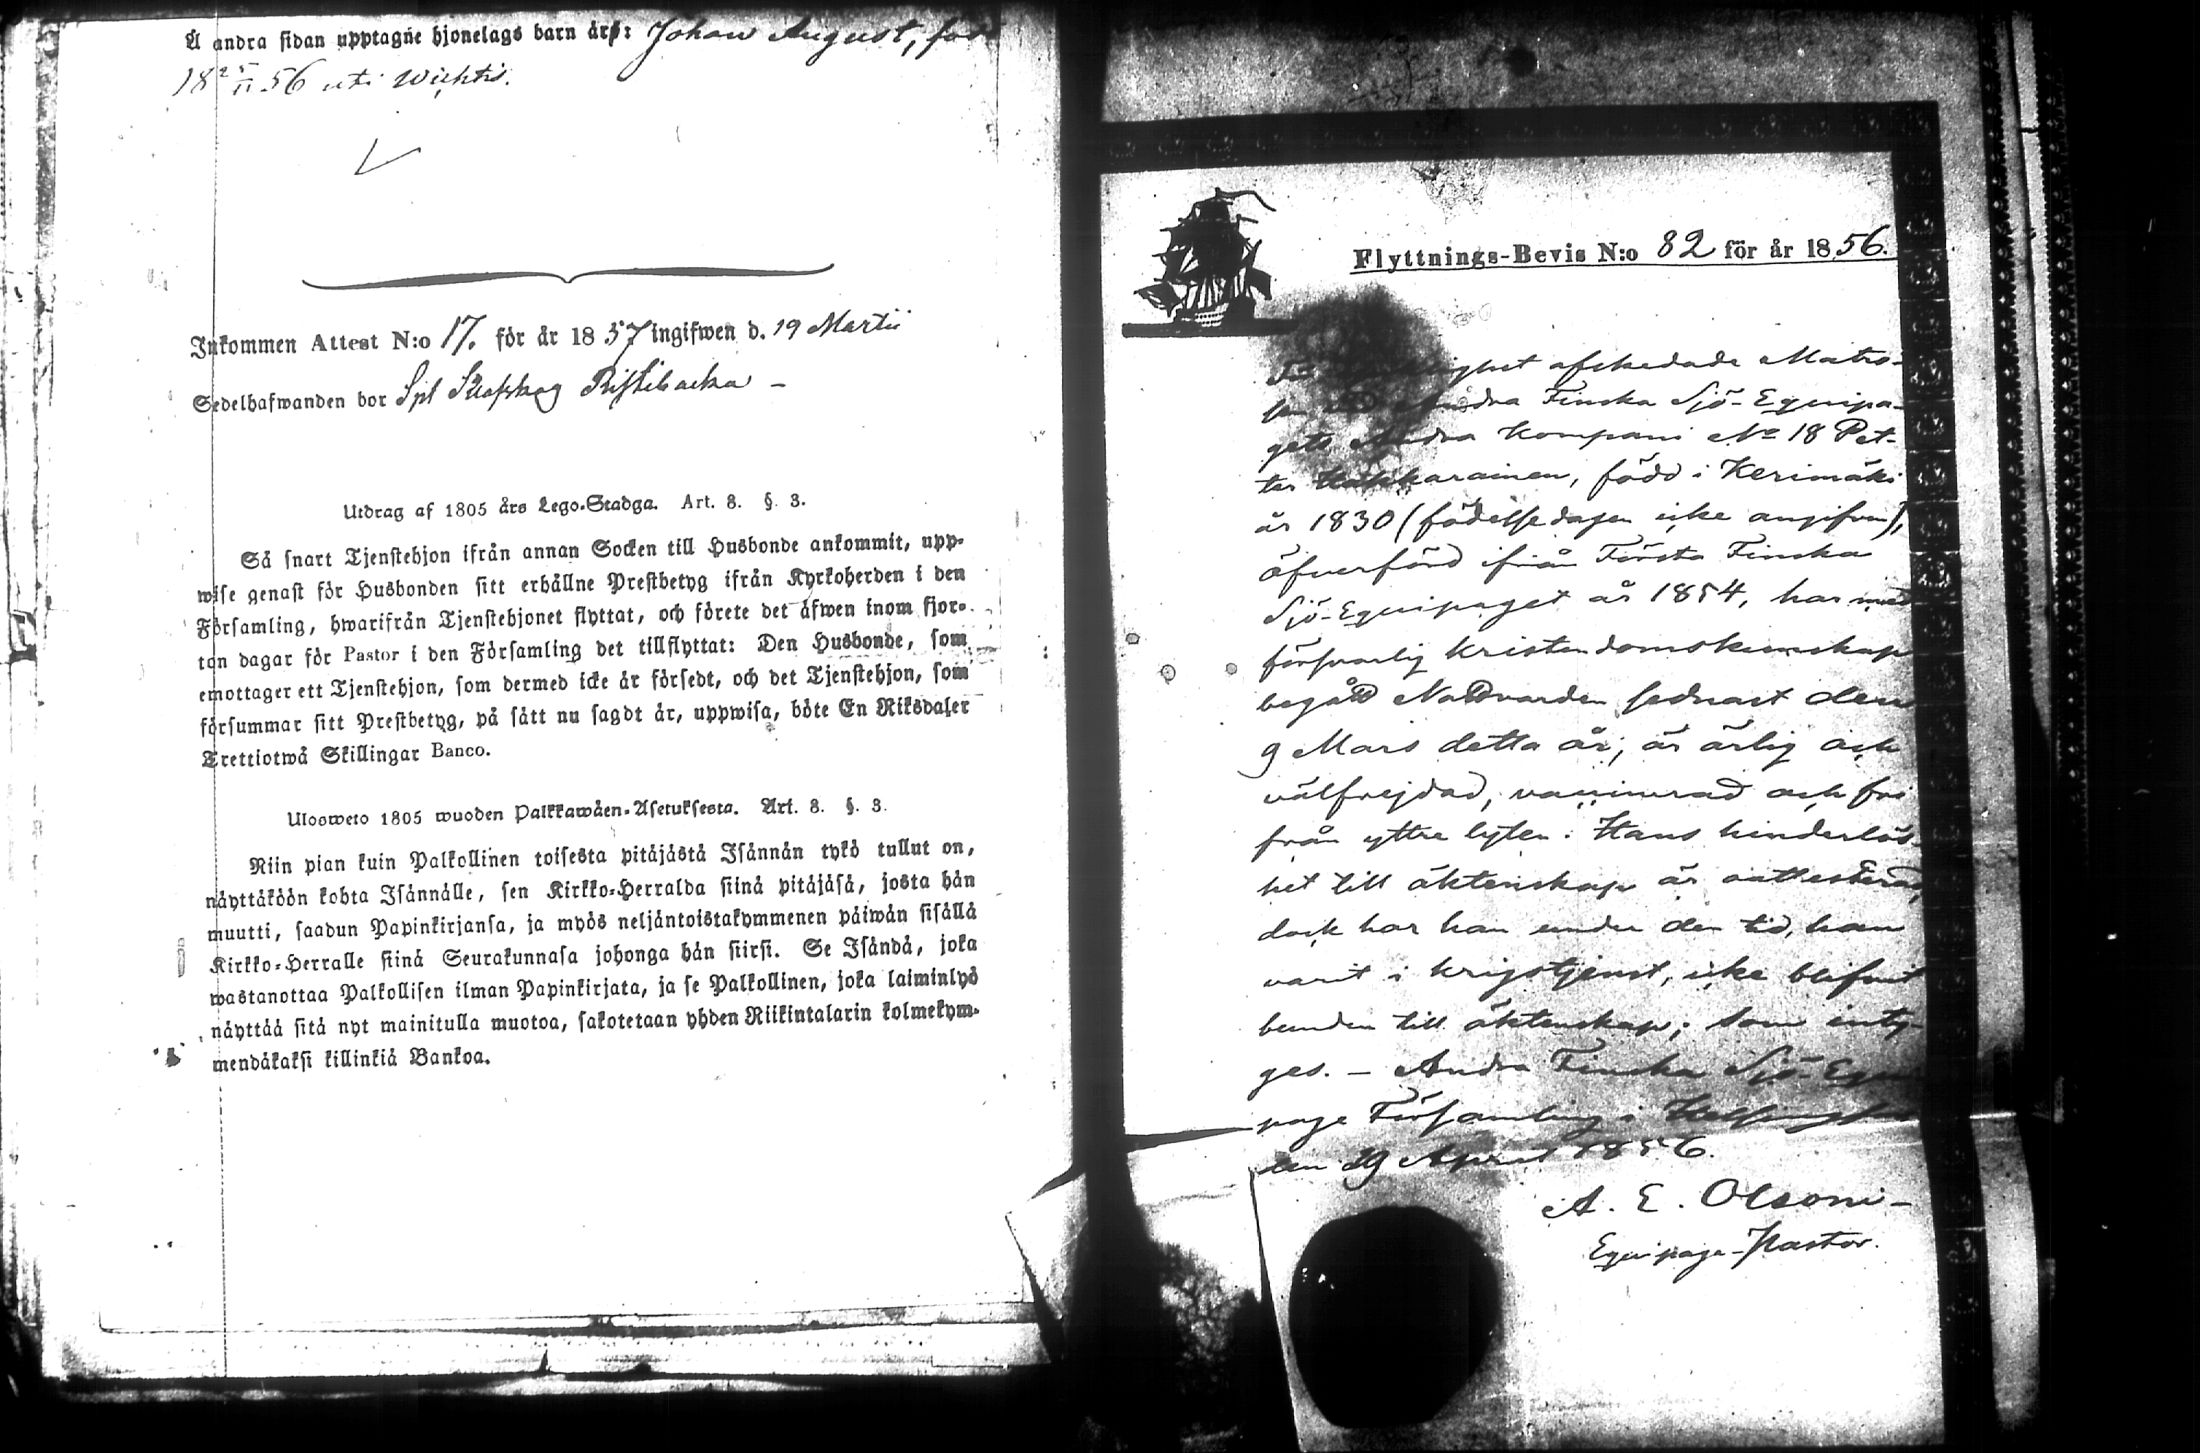 Å andra sidan upptagne hjonelags barn äro: Johan August, född
18 25/11 56 uti Wichtis.
Inkommen Attest N:o 17. för år 1857 ingifwen d. 19 Martii
Sedelhafwanden bor Spl
Utdrag af 1805 års Lego-Stadga. Art. 8. §. 3.
Så snart Tjenstehjon ifrån annan Socken till Husbonde ankommit, upp-
wise genast för Husbonden sitt erhållne Prestbetyg ifrån Kyrkoherden i den
Församling, hwarifrån Tjenstehjonet flyttat, och förete det äfwen inom fjor-
ton dagar för Pastor i den Församling det tillflyttat: Den Husbonde, som
emottager ett Tjenstehjon, som dermed icke är försedt, och det Tjenstehjon, som
försummar sitt Prestbetyg, på sätt nu sagdt är, uppwisa, böte En Riksdaler
Trettiotwå Skillingar Banco.
Ulosweto 1805 wuoden Palkkawäen-Asetuksesta. Art. 8. §. 3.
Niin pian kuin Palkollinen toisesta pitäjästä Isännän tykö tullut on,
näyttäköön kohta Isännälle, sen Kirkko-Herralda siinä pitäjäsä, josta hän
muutti, saadun Papinkirjansa, ja myös neljäntoistakymmenen päiwän sisällä
Kirkko-Herralle siinä Seurakunnasa johonga hän siirsi. Se Isändä, joka
wastanottaa Palkollisen ilman Papinkirjata, ja se Palkollinen, joka laiminlyö
näyttää sitä nyt mainitulla muotoa, sakotetaan yhden Riikintalarin kolmekym-
mendäkaksi killinkiä Bankoa.
Flyttnings-Bevis N:o 82 för år 1856.
afskedade Matro-
sen Andra Finska Sjö-Equipa-
gets Andra Kompani No 18 Pet-
ter Kakkarainen, född i Kerimäki
år 1830 (födelsedagen icke angifven),
öfverförd ifrån Första Finska
Sjö-Equipaget år 1854, har med
försvarlig kristendomskunskap
begått Nattvarden sednast den
9 Mars detta år; är ärlig och
välfrejdad, vaccinerad och fri
från yttre lyten. Hans hinderlös-
het till äktenskap är oattesterad,
dock har han under den tid, han
varit i krigstjenst, icke blifvit
bunden till äktenskap; som inty-
ges. – Andra Finska Sjö-Equi-
page Församling i Helsingfors
den 29 April 1856.
A. E. Olsoni
Equipage-Pastor.